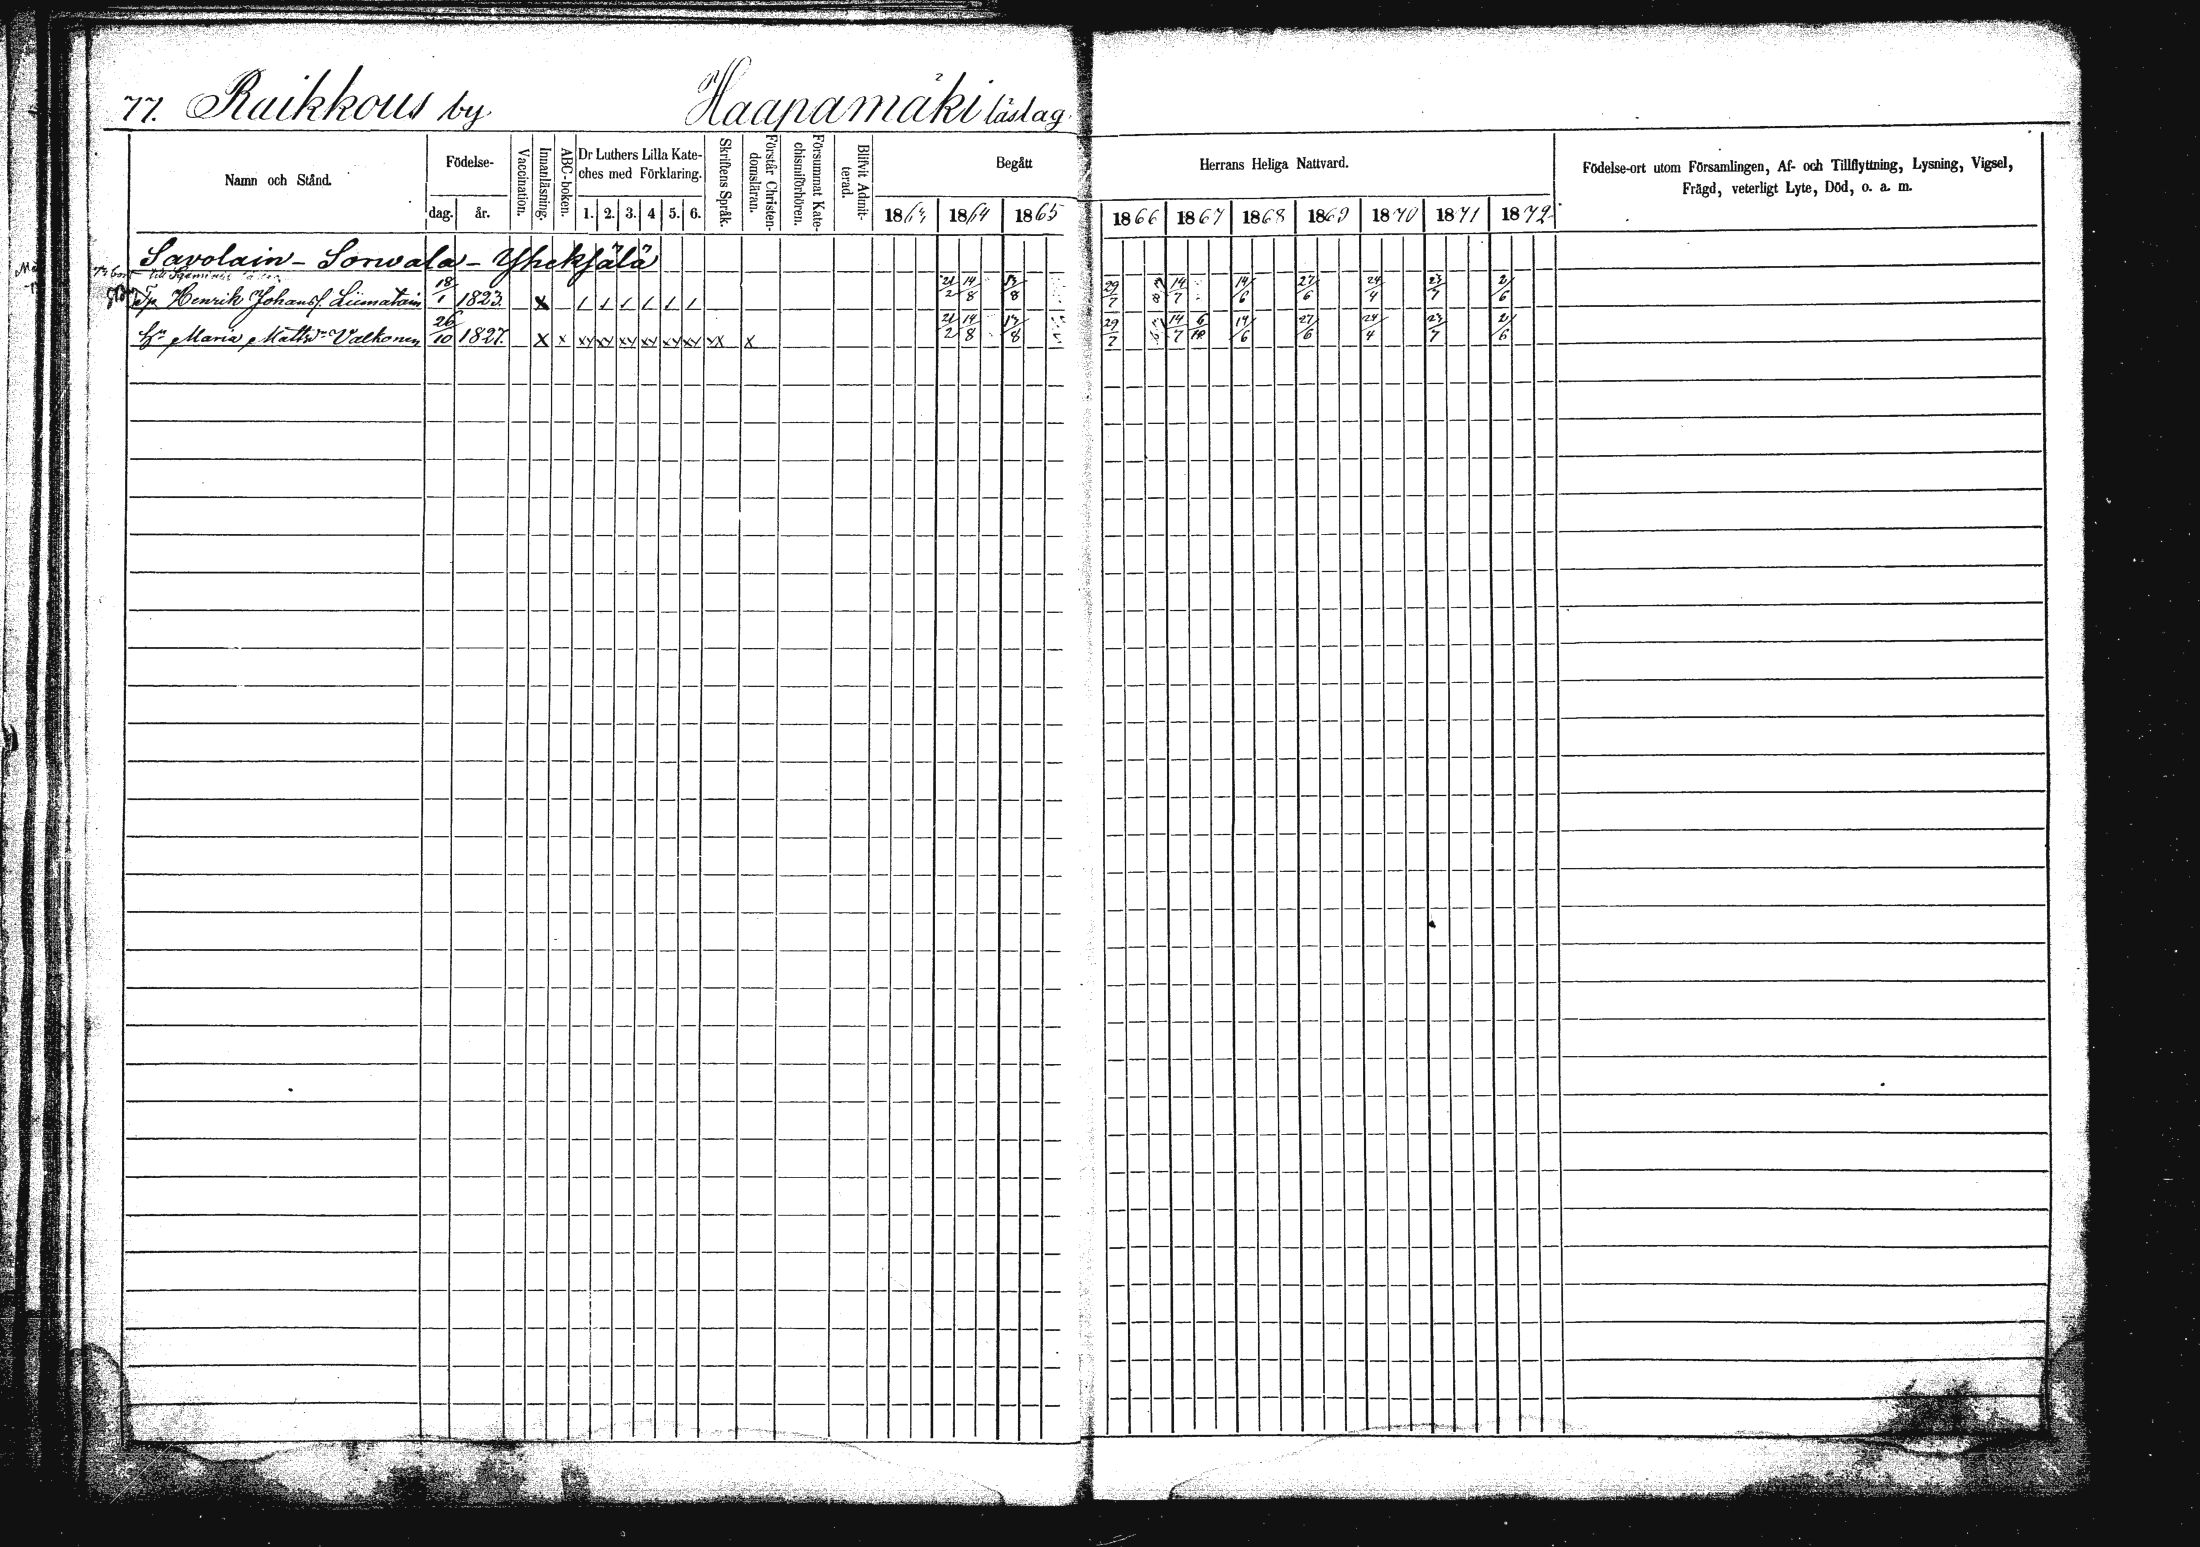 77. Raikkous by Haapamäki läslag.
Namn och Stånd. Födelse- Vaccination. Innanläsning. ABC-boken. Dr Luthers Lilla Kateches med Förklaring. Skriftens Språk. Förstår Christendomsläran. Försummat Katechismiförhören. Blifvit Admitterad. Begått Herrans Heliga Nattvard. Födelse-ort utom Församlingen, Af- och Tillflyttning, Lysning, Vigsel, Frägd, veterligt Lyte, Död, o. a. m.
dag. år. 1. 2. 3. 4 5. 6. 1863 1864 1865 1866 1867 1868 1869 1870 1871 1872
Savolain - Sorwala - Yheksälä
Tp Henrik Johanss. Liimatain 18/1 1823. X 21/2 14/8 13/8 29/7 14/7 14/6 27/6 24/4 23/7 2/6
Hu Maria Mattsdr Valkonen 26/10 1827. X x xx xx xx xx xx xx xx x 21/2 14/8 13/8 29/7 14/7 6/10 14/6 27/6 24/4 23/7 2/6